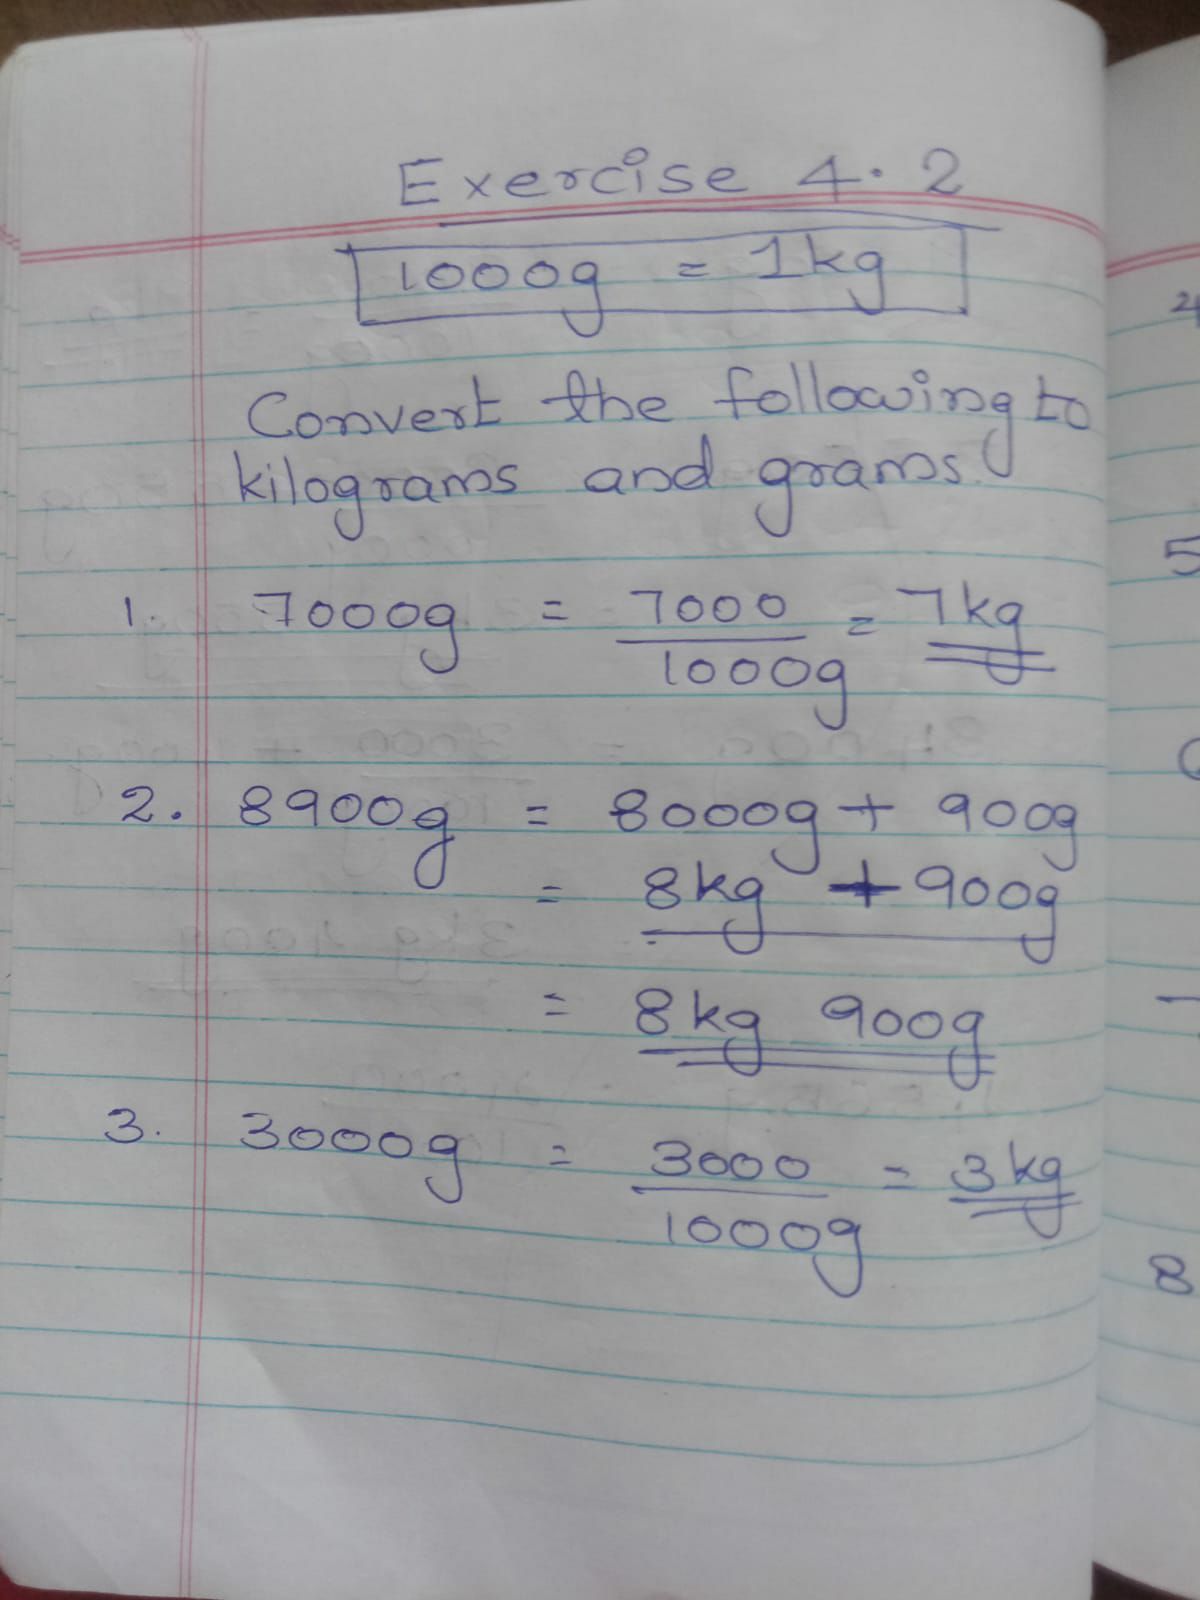 Exercise 4.2
1000g = 1kg
Convert the following to
kilograms and grams.
1. 7000g = 7000/1000g = 7kg
2. 8900g = 8000g + 900g
= 8kg + 900g
= 8kg 900g
3. 3000g = 3000/1000g = 3kg
4
5
8